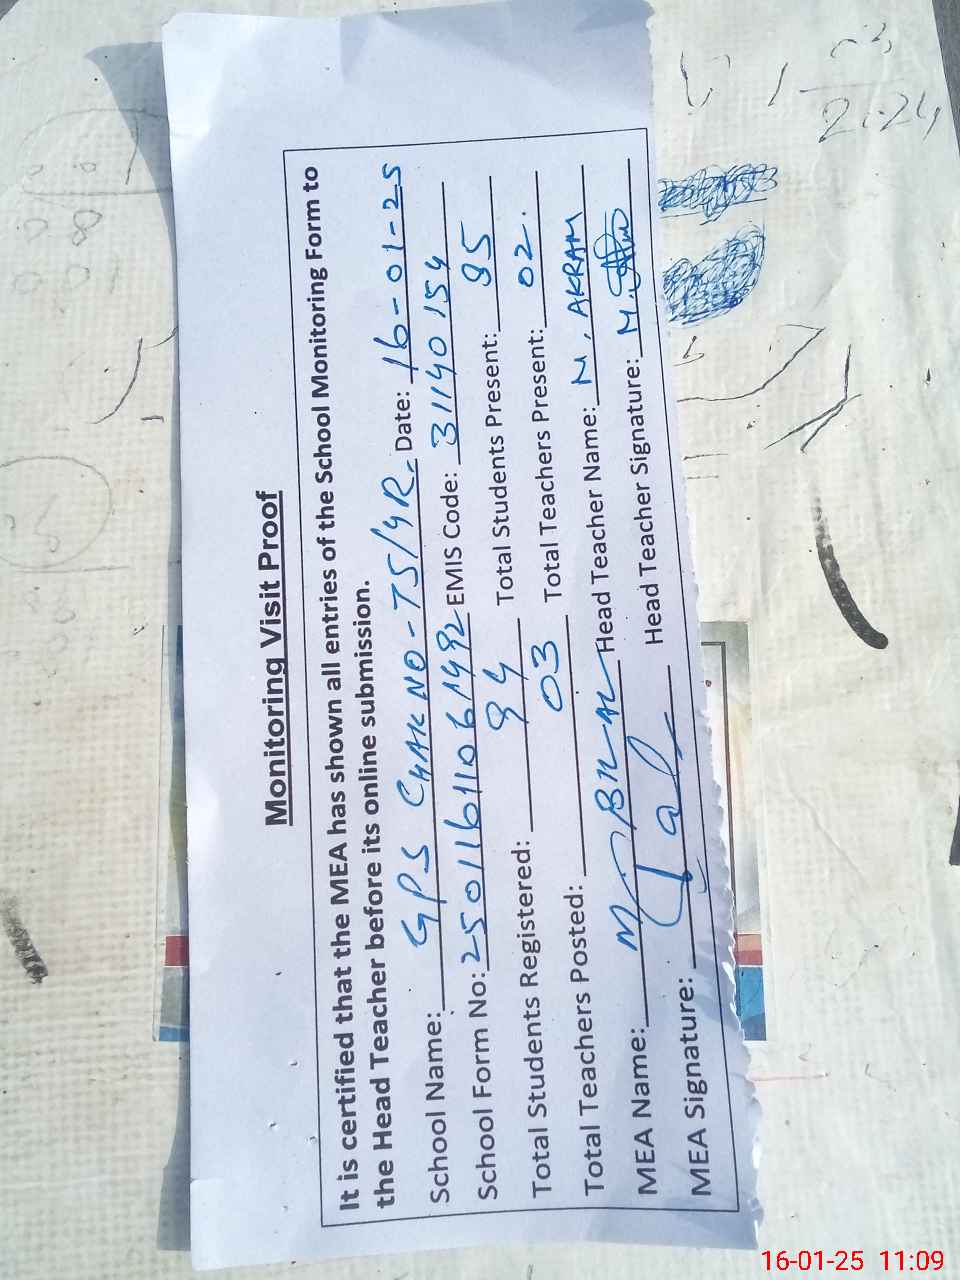 Monitoring Visit Proof
It is certified that the MEA has shown all entries of the School Monitoring Form to
the Head Teacher before its online submission.
School Name: GPS CHAK NO-75/4R Date: 16-01-25
School Form No: 25011611061492 EMIS Code: 31140154
Total Students Registered: 94 Total Students Present: 85
Total Teachers Posted: 03 Total Teachers Present: 02.
MEA Name: M IQBAL Head Teacher Name: M. AKRAM
MEA Signature: Head Teacher Signature:
21.24
16-01-25 11:09